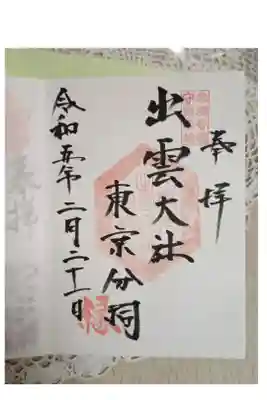 奉拝
出雲大社
東京分祠
令和五年二月二十一日
縁